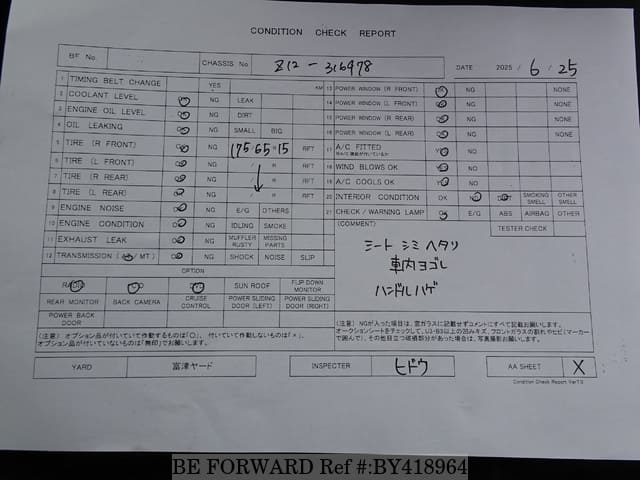 CONDITION CHECK REPORT
BF No CHASSIS No Z12-316978 DATE 2025 / 6 / 25
1 TIMING BELT CHANGE YES KM
2 COOLANT LEVEL OK NG LEAK
3 ENGINE OIL LEVEL OK NG DIRT
4 OIL LEAKING OK NG SMALL BIG
5 TIRE (R FRONT) OK NG 175/65R15 RFT
6 TIRE (L FRONT) OK NG / R RFT
7 TIRE (R REAR) OK NG / R RFT
8 TIRE (L REAR) OK NG / R RFT
9 ENGINE NOISE OK NG E/G OTHERS
10 ENGINE CONDITION OK NG IDLING SMOKE
11 EXHAUST LEAK OK NG MUFFLER RUSTY MISSING PARTS
12 TRANSMISSION (AT/MT) OK NG SHOCK NOISE SLIP
OPTION
RADIO CD DVD SUN ROOF FLIP DOWN MONITOR
REAR MONITOR BACK CAMERA CRUISE CONTROL POWER SLIDING DOOR (LEFT) POWER SLIDING DOOR (RIGHT)
POWER BACK DOOR
(注意) オプション品が付いていて作動するものは「○」、付いていて作動しないものは「×」、
オプション品が付いていないものは「無印」でお願いします。
13 POWER WINDOW (R FRONT) OK NG NONE
14 POWER WINDOW (L FRONT) OK NG NONE
15 POWER WINDOW (R REAR) OK NG NONE
16 POWER WINDOW (L REAR) OK NG NONE
17 A/C FITTED YES NO
18 WIND BLOWS OK YES NO
19 A/C COOLS OK YES NO
20 INTERIOR CONDITION OK NG DIRT SMOKING SMELL OTHER SMELL
21 CHECK / WARNING LAMP OK E/G ABS AIRBAG OTHER
(COMMENT) TESTER CHECK
シート シミ ヘタリ
車内ヨゴレ
ハンドルハゲ
(注意) NGが入った場合は、窓ガラスに記載せずコメントにすべて記載お願いします。
オークションシートをチェックして、U3・B3以上の凹みキズ、フロントガラスの割れやヒビ(マーカー
で囲んで)、その他目立つ破損部分があった場合は、写真撮影お願いします。
YARD 富津ヤード INSPECTER ヒドウ AA SHEET X
Condition Check Report Ver7.5
BE FORWARD Ref #:BY418964